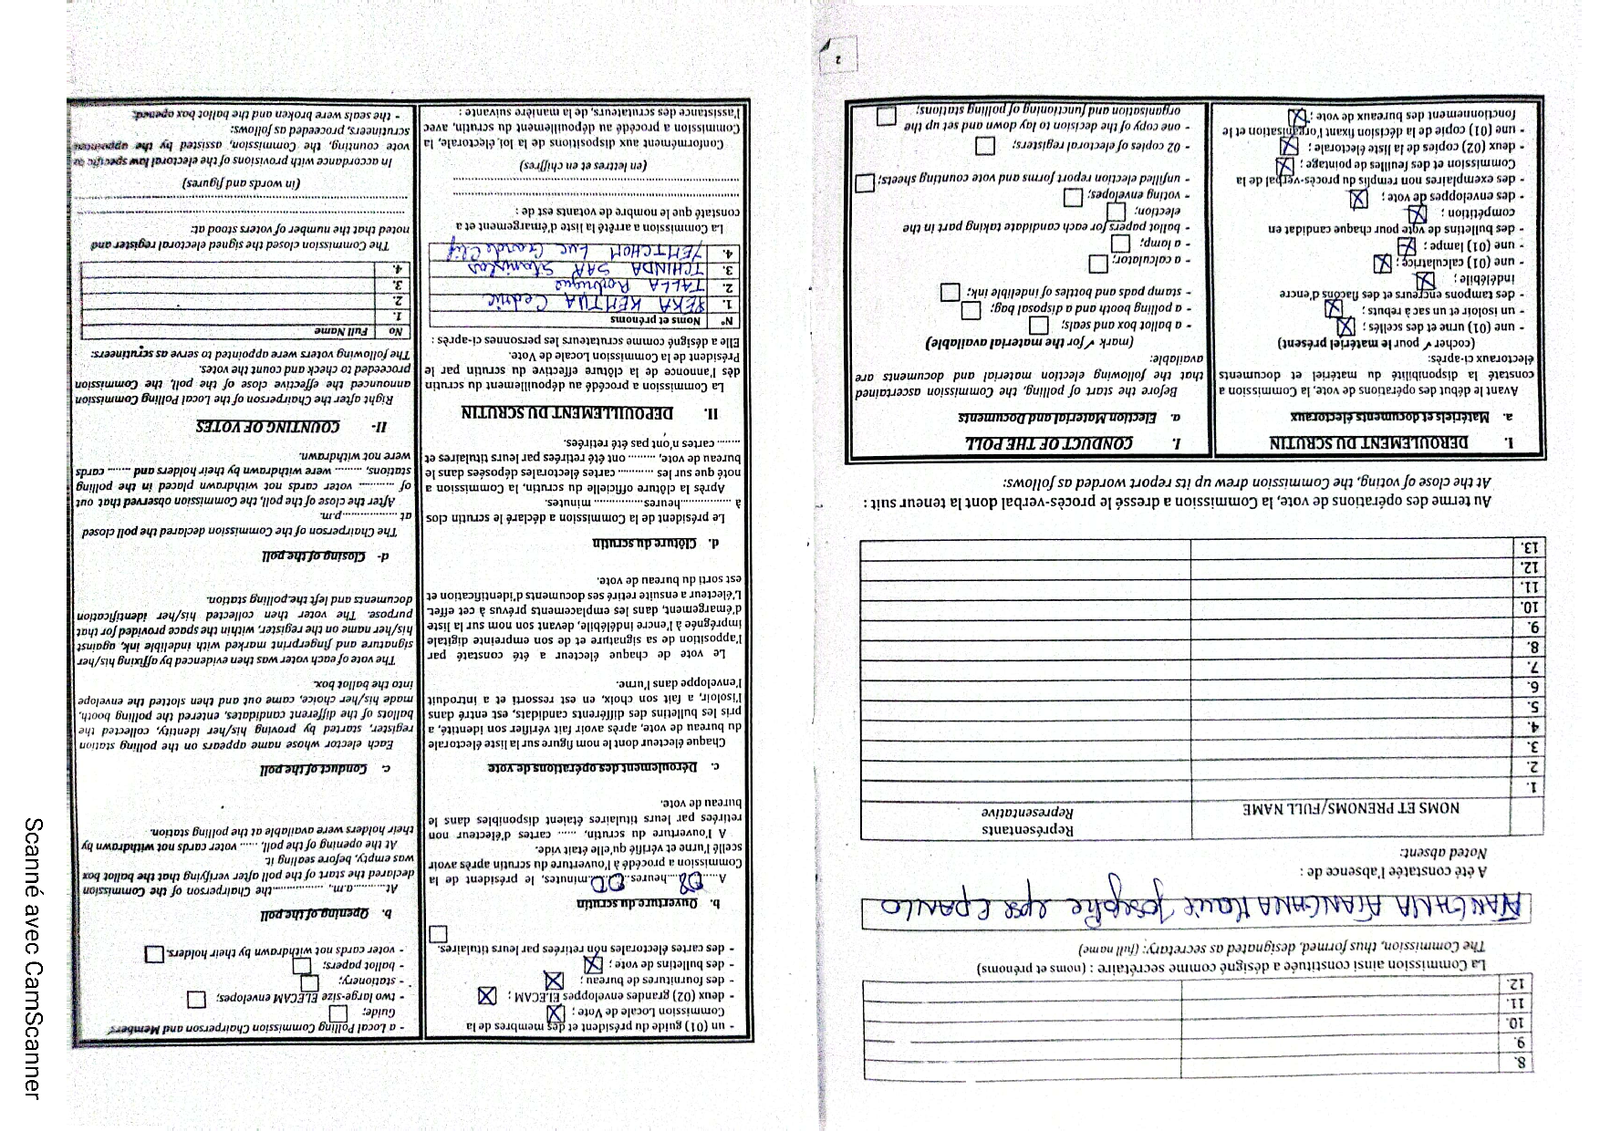 8.
9.
10.
11.
12.
La Commission ainsi constituée a désigné comme secrétaire : (noms et prénoms)
The Commission, thus formed, designated as secretary: (full name)
ATANGANA Marie Josephe epse
A été constatée l'absence de :
Noted absent:
NOMS ET PRENOMS/FULL NAME
Représentants
Representative
1.
2.
3.
4.
5.
6.
7.
8.
9.
10.
11.
12.
13.
Au terme des opérations de vote, la Commission a dressé le procès-verbal dont la teneur suit :
At the close of voting, the Commission drew up its report worded as follows:
I. DEROULEMENT DU SCRUTIN
a. Matériels et documents électoraux
Avant le début des opérations de vote, la Commission a
constaté la disponibilité du matériel et documents
électoraux ci-après:
(cocher ✓ pour le matériel présent)
- une (01) urne et des scellés ; ☒
- un isoloir et un sac à rebuts ; ☒
- des tampons encreurs et des flacons d'encre
indélébile ; ☒
- une (01) calculatrice ; ☒
- une (01) lampe ; ☒
- des bulletins de vote pour chaque candidat en
compétition ; ☒
- des enveloppes de vote ; ☒
- des exemplaires non remplis du procès-verbal de la
Commission et des feuilles de pointage ; ☒
- deux (02) copies de la liste électorale ; ☒
- une (01) copie de la décision fixant l'organisation et le
fonctionnement des bureaux de vote ; ☒
I. CONDUCT OF THE POLL
a. Election Material and Documents
Before the start of polling, the Commission ascertained
that the following election material and documents are
available:
(mark ✓ for the material available)
- a ballot box and seals; ☐
- a polling booth and a disposal bag; ☐
- stamp pads and bottles of indelible ink; ☐
- a calculator; ☐
- a lamp; ☐
- ballot papers for each candidate taking part in the
election; ☐
- voting envelopes; ☐
- unfilled election report forms and vote counting sheets; ☐
- 02 copies of electoral registers; ☐
- one copy of the decision to lay down and set up the
organisation and functioning of polling stations; ☐
2
- un (01) guide du président et des membres de la
Commission Locale de Vote ; ☒
- deux (02) grandes enveloppes ELECAM ; ☒
- des fournitures de bureau ; ☒
- des bulletins de vote ; ☒
- des cartes électorales non retirées par leurs titulaires. ☐
b. Ouverture du scrutin
A 08 heures 00 minutes, le président de la
Commission a procédé à l'ouverture du scrutin après avoir
scellé l'urne et vérifié qu'elle était vide.
A l'ouverture du scrutin, ...... cartes d'électeur non
retirées par leurs titulaires étaient disponibles dans le
bureau de vote.
c. Déroulement des opérations de vote
Chaque électeur dont le nom figure sur la liste électorale
du bureau de vote, après avoir fait vérifier son identité, a
pris les bulletins des différents candidats, est entré dans
l'isoloir, a fait son choix, en est ressorti et a introduit
l'enveloppe dans l'urne.
Le vote de chaque électeur a été constaté par
l'apposition de sa signature et de son empreinte digitale
imprégnée à l'encre indélébile, devant son nom sur la liste
d'émargement, dans les emplacements prévus à cet effet.
L'électeur a ensuite retiré ses documents d'identification et
est sorti du bureau de vote.
d. Clôture du scrutin
Le président de la Commission a déclaré le scrutin clos
à ............heures.................. minutes.
Après la clôture officielle du scrutin, la Commission a
noté que sur les .......... cartes électorales déposées dans le
bureau de vote, ........ ont été retirées par leurs titulaires et
...... cartes n'ont pas été retirées.
II. DEPOUILLEMENT DU SCRUTIN
La Commission a procédé au dépouillement du scrutin
dès l'annonce de la clôture effective du scrutin par le
Président de la Commission Locale de Vote.
Elle a désigné comme scrutateurs les personnes ci-après :
N° Noms et prénoms
1. KEMTUA Cedric
2. TALLA Rodrigue
3. TCHINDA SAR Stanislas
4. YEMTCHOM Luc
La Commission a arrêté la liste d'émargement et a
constaté que le nombre de votants est de :
(en lettres et en chiffres)
Conformément aux dispositions de la loi électorale, la
Commission a procédé au dépouillement du scrutin, avec
l'assistance des scrutateurs, de la manière suivante :
- a Local Polling Commission Chairperson and Members'
Guide; ☐
- two large-size ELECAM envelopes; ☐
- stationery; ☐
- ballot papers; ☐
- voter cards not withdrawn by their holders. ☐
b. Opening of the poll
At..........a.m, ...............the Chairperson of the Commission
declared the start of the poll after verifying that the ballot box
was empty, before sealing it.
At the opening of the poll, ...... voter cards not withdrawn by
their holders were available at the polling station.
c. Conduct of the poll
Each elector whose name appears on the polling station
register, started by proving his/her identity, collected the
ballots of the different candidates, entered the polling booth,
made his/her choice, came out and then slotted the envelope
into the ballot box.
The vote of each voter was then evidenced by affixing his/her
signature and fingerprint marked with indelible ink, against
his/her name on the register, within the space provided for that
purpose. The voter then collected his/her identification
documents and left the polling station.
d- Closing of the poll
The Chairperson of the Commission declared the poll closed
at .................p.m.
After the close of the poll, the Commission observed that out
of .......... voter cards not withdrawn placed in the polling
stations, ........ were withdrawn by their holders and ....... cards
were not withdrawn.
II- COUNTING OF VOTES
Right after the Chairperson of the Local Polling Commission
announced the effective close of the poll, the Commission
proceeded to check and count the votes.
The following voters were appointed to serve as scrutineers:
No Full Name
1.
2.
3.
4.
The Commission closed the signed electoral register and
noted that the number of voters stood at:
(in words and figures)
In accordance with provisions of the electoral law specific to
vote counting, the Commission, assisted by the appointed
scrutineers, proceeded as follows:
- the seals were broken and the ballot box opened;
Scanné avec CamScanner